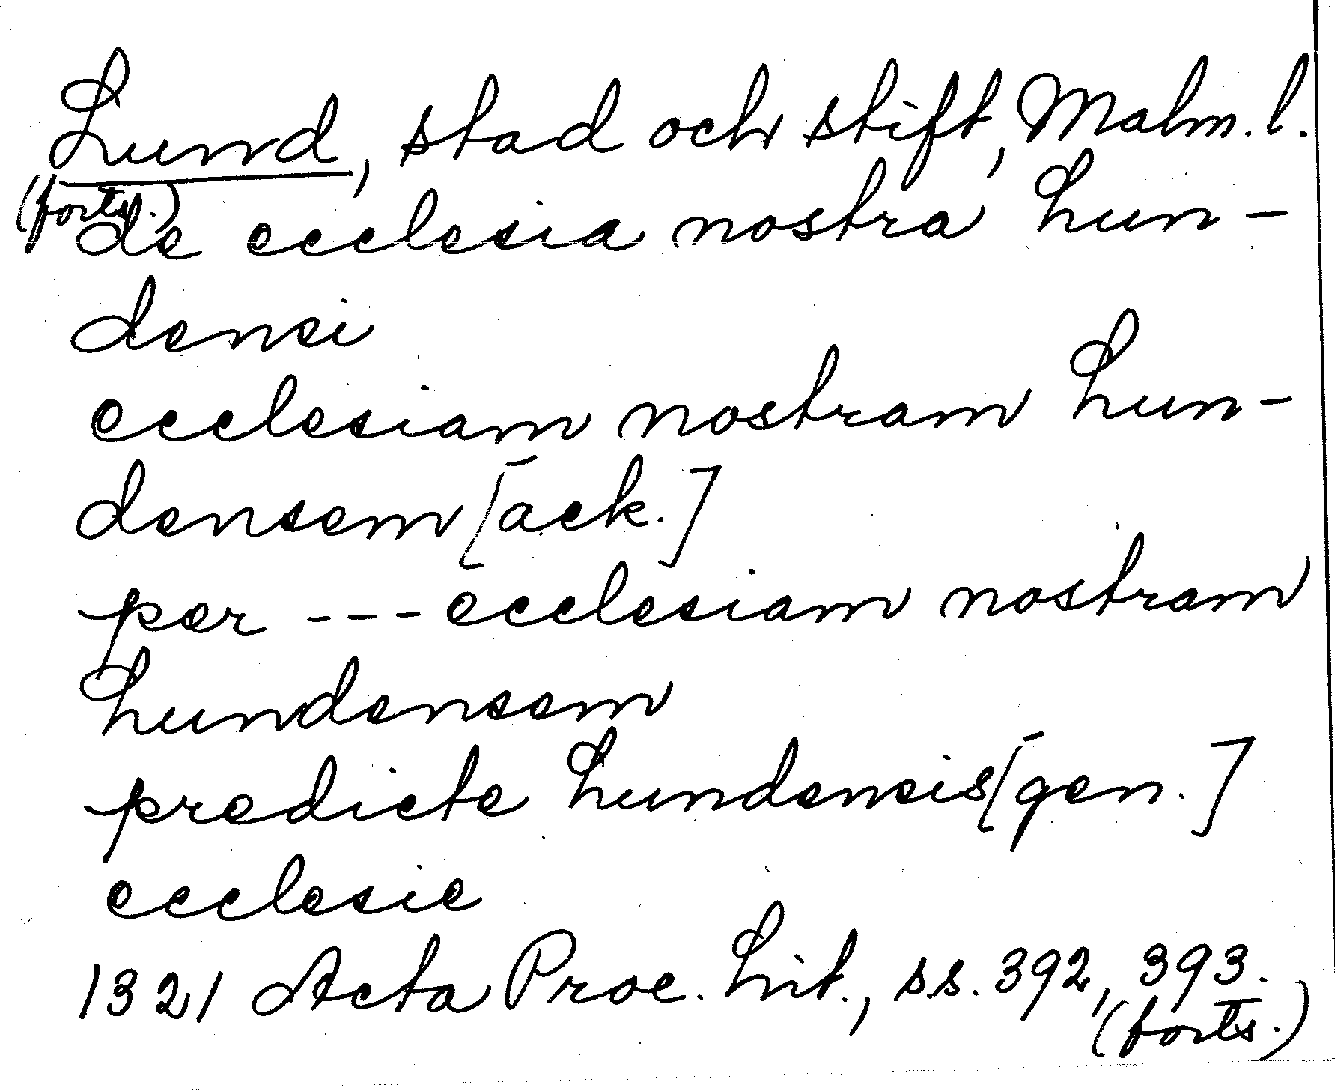 Lund, stad och stift, Malm. l.
(forts.)
de ecclesia nostra Lun-
densi
ecclesiam nostram Lun-
densem [ack.]
per --- ecclesiam nostram
Lundensem
predicte Lundensis [gen.]
ecclesie
1321 Acta Proc. Lit., ss. 392, 393.
(forts.)